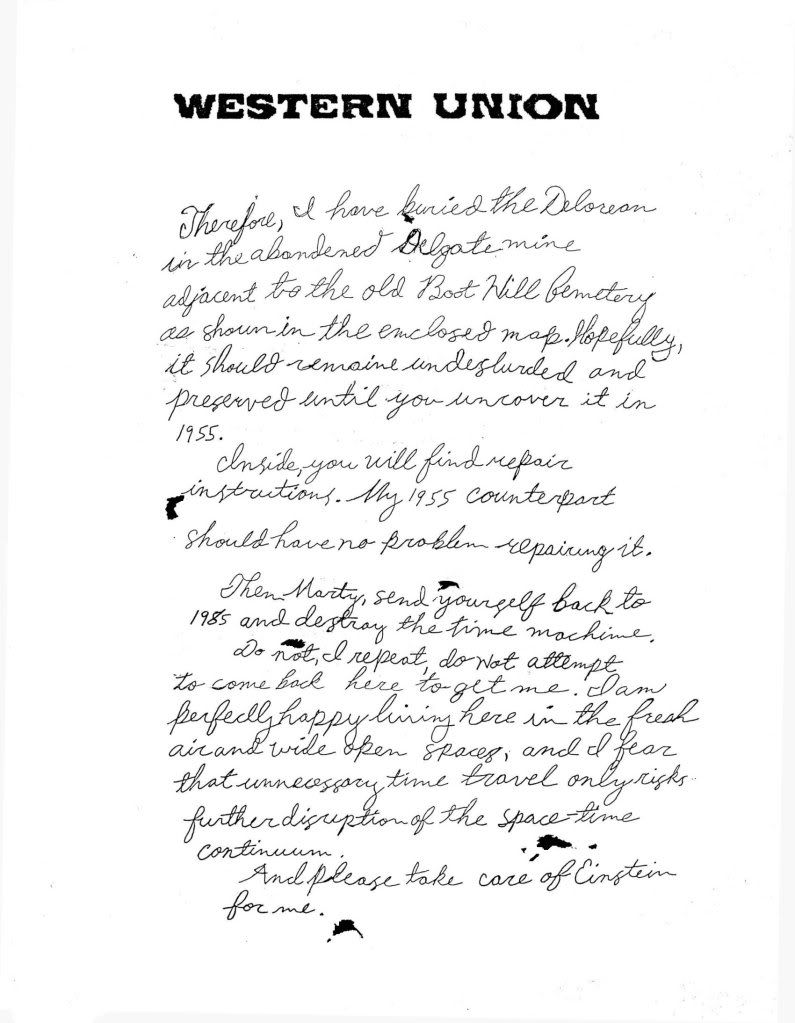 WESTERN UNION
Therefore, I have buried the Delorean
in the abandened Delgate mine
adjacent to the old Boot Hill Cemetery
as shown in the enclosed map. Hopefully,
it should remaine undeslurded and
preserved until you uncover it in
1955.
Inside, you will find repair
instructions. My 1955 counterpart
should have no problem repairing it.
Then Marty, send yourself back to
1985 and destray the time machine.
Do not, I repeat, do not attempt
to come back here to get me. I am
perfectly happy living here in the fresh
air and wide open spaces, and I fear
that unnecessary time travel only risks
further disruption of the space-time
continuum.
And please take care of Einstein
for me.